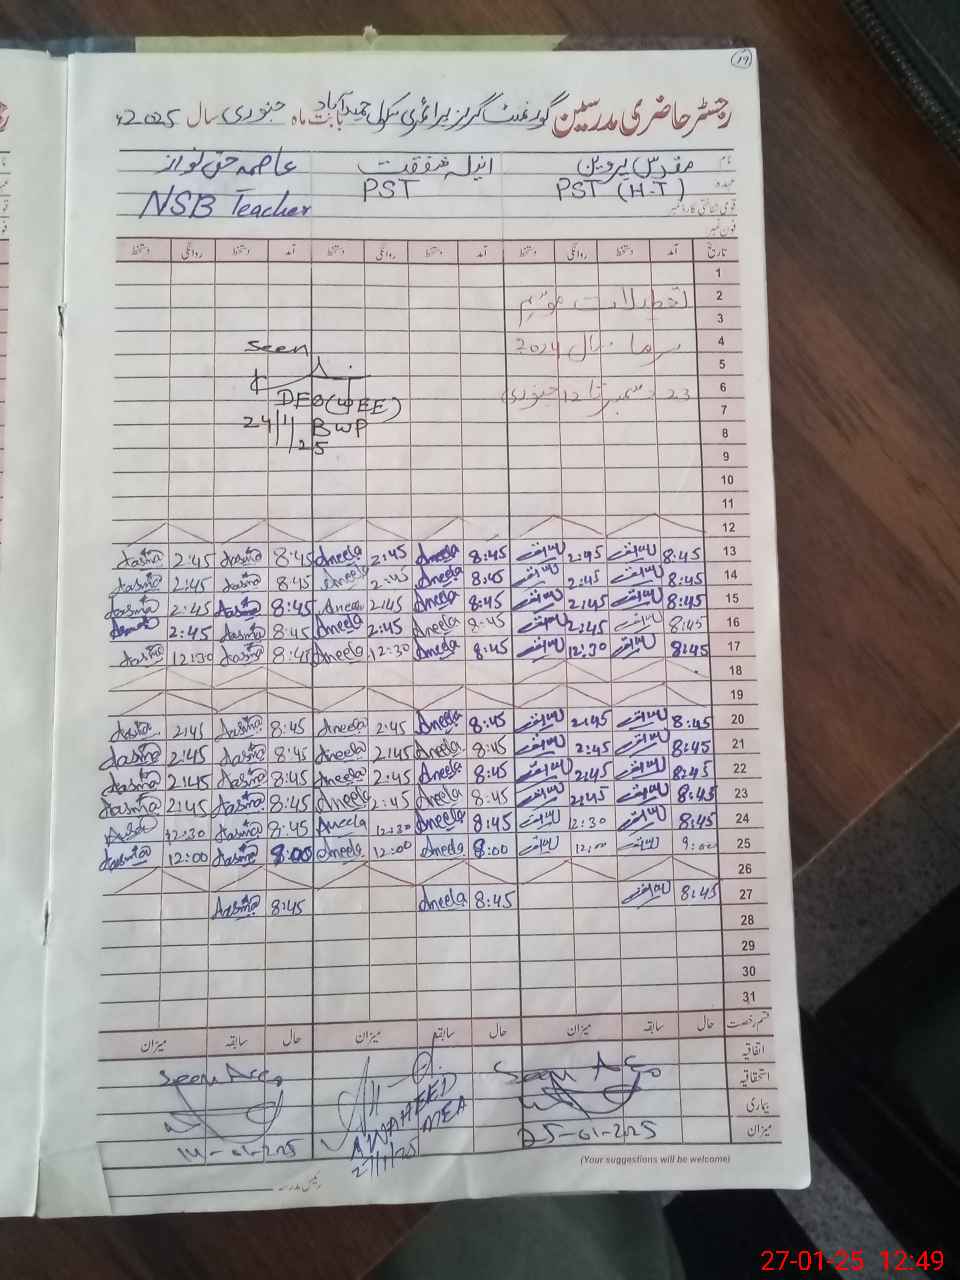 19
رجسٹر حاضری مدرسین گورنمنٹ گرلز پرائمری سکول حمیدآباد بابت ماہ جنوری سال 2025ء
نام مقدس پروین انیلہ شفقت عاصمہ حق نواز
عہدہ PST (H.T) PST NSB Teacher
قومی شناختی کارڈ نمبر
فون نمبر
تاریخ آمد دستخط روانگی دستخط آمد دستخط روانگی دستخط آمد دستخط روانگی دستخط
1
2 تعطیلات موسم
3
4 سرما سال 2024
seen
5
6 23 دسمبر تا 12 جنوری
DEO (WEE)
7
24/1/25 BWP
8
9
10
11
12
13 8:45 2:45 8:45 Aneela 2:45 Aneela 8:45 Aasma 2:45 Aasma
14 8:45 2:45 8:45 Aneela 2:45 Aneela 8:45 Aasma 2:45 Aasma
15 8:45 2:45 8:45 Aneela 2:45 Aneela 8:45 Aasma 2:45 Aasma
16 8:45 2:45 8:45 Aneela 2:45 Aneela 8:45 Aasma 2:45
17 8:45 12:30 8:45 Aneela 12:30 Aneela 8:45 Aasma 12:30 Aasma
18
19
20 8:45 2:45 8:45 Aneela 2:45 Aneela 8:45 Aasma 2:45 Aasma
21 8:45 2:45 8:45 Aneela 2:45 Aneela 8:45 Aasma 2:45 Aasma
22 8:45 2:45 8:45 Aneela 2:45 Aneela 8:45 Aasma 2:45 Aasma
23 8:45 2:45 8:45 Aneela 2:45 Aneela 8:45 Aasma 2:45 Aasma
24 8:45 12:30 8:45 Aneela 12:30 Aneela 8:45 Aasma 12:30
25 9:00 12:00 8:00 Aneela 12:00 Aneela 8:00 Aasma 12:00 Aasma
26
27 8:45 8:45 Aneela 8:45 Aasma
28
29
30
31
قسم رخصت حال سابقہ میزان حال سابقہ میزان حال سابقہ میزان
اتفاقیہ
استحقاقیہ
بیماری
میزان
Seen
25-01-2025
A WAHEED
MEA
Seen
14-01-2025
(Your suggestions will be welcome)
رئیس مدرسہ
27-01-25 12:49